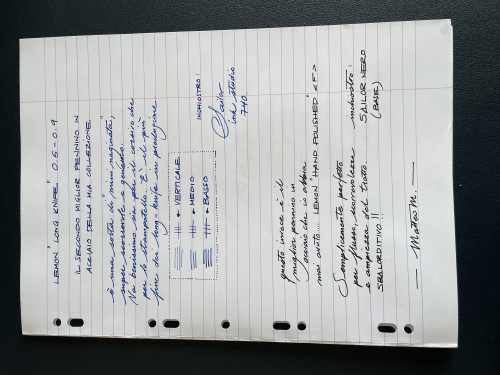 LEMON "LONG KNIFE" 0.6-0.9
IL SECONDO MIGLIOR PENNINO IN
ACCIAIO DELLA MIA COLLEZIONE
è una sorta di mini naginata,
super scorrevole e godurioso.
Va benissimo sia per il corsivo che
per lo stampatello. È il più
fine dei long-knife in produzione.
VERTICALE
MEDIO
BASSO
INCHIOSTRO:
Sailor
ink studio
740.
questo invece è il
miglior pennino in
acciaio che io abbia
mai avuto... LEMON "HAND POLISHED" <F>
Semplicemente perfetto
per flusso, scorrevolezza
e ampiezza del tratto.
SBALORDITIVO!!
inchiostro:
SAILOR NERO
(BASE)
— Matteo M. —